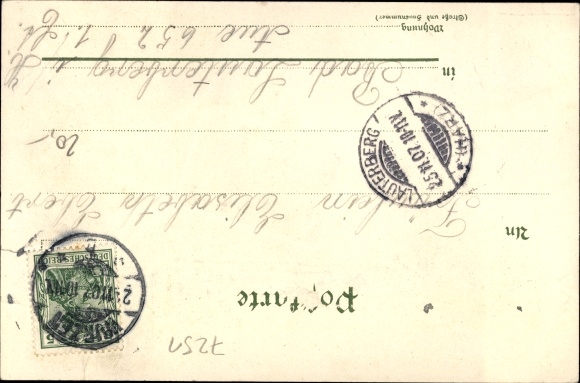 Postkarte
An
Fräulein Elisabeth Ebert
20,-
in Bad Lauterberg i/H.
Wohnung
(Straße und Hausnummer)
Aue 652 I.
LAUTERBERG
(HARZ)
25.11.07.10-11V.
DEUTSCHES REICH
5
7251